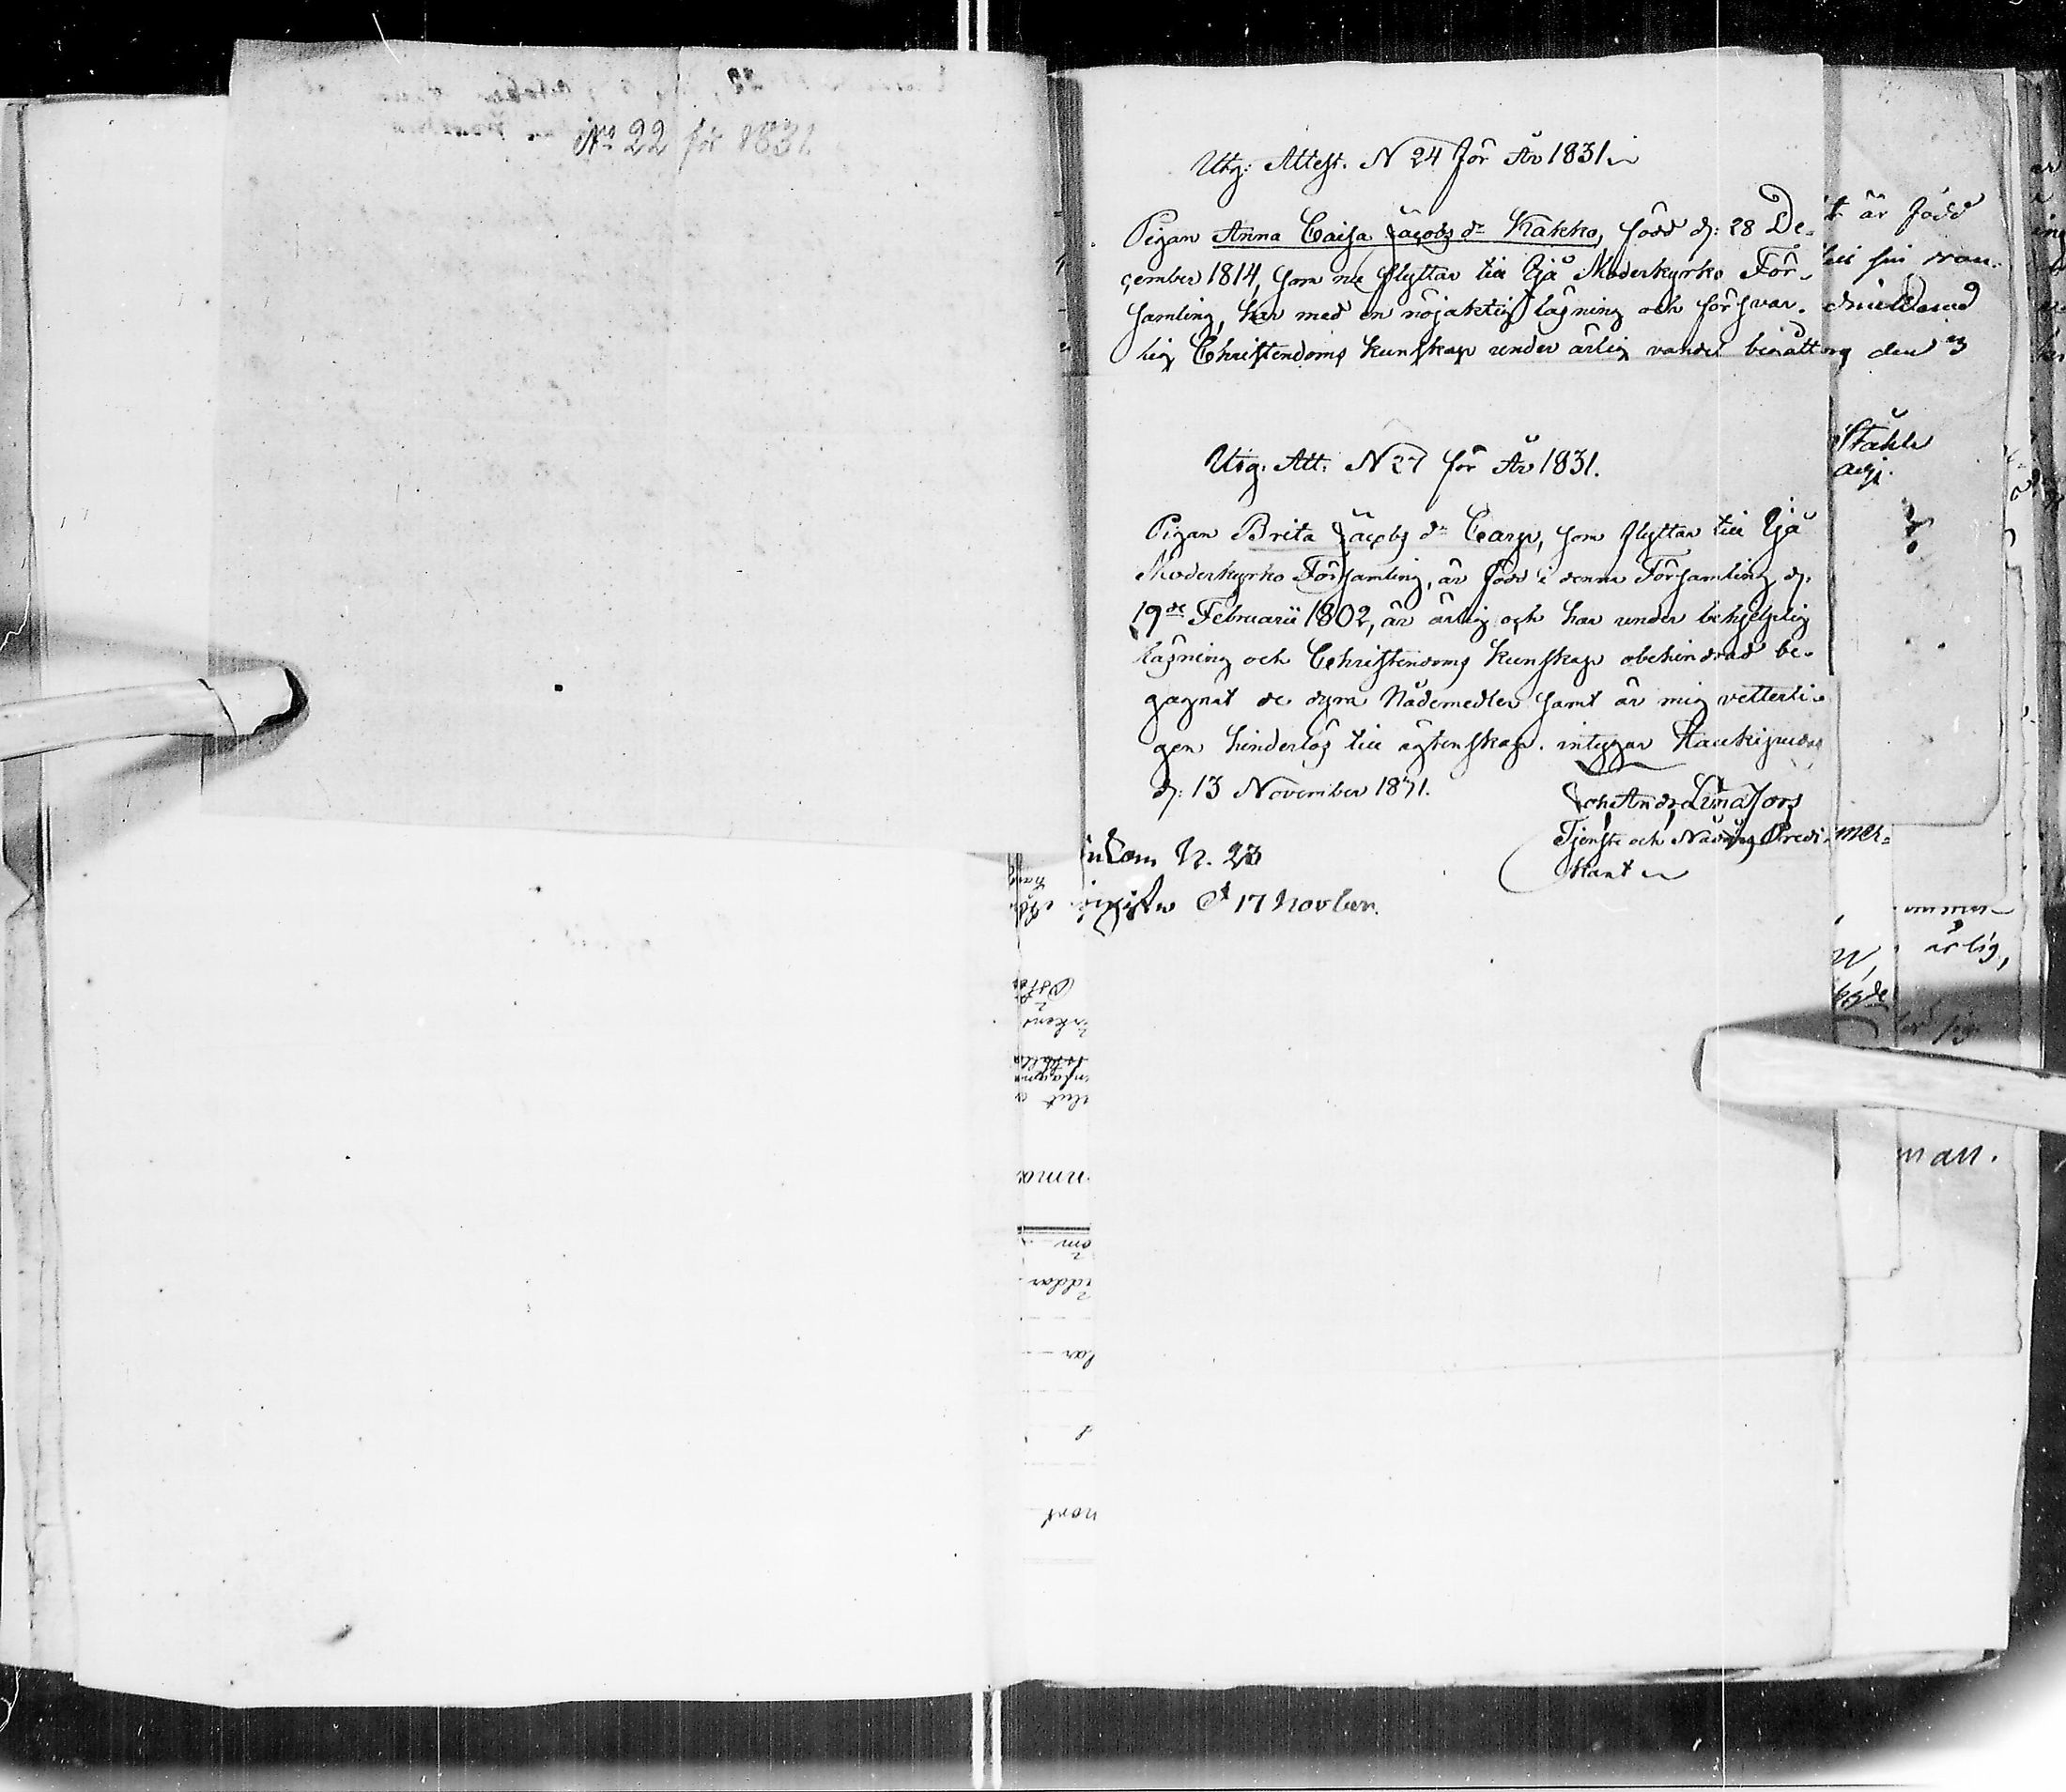 No 22 för 1831
Utg: Attest. N 24 för År 1831
Pigan Anna Caisa Jacobs dr Kakko, född d: 28 De-
cember 1814, som nu flyttar till Ijå Moderkyrko För-
samling, har med en nöjaktig läsning och försvar-
lig Christendoms kunskap under ärlig vandel
Utg. Att: N 27 för År 1831.
Pigan Brita Jacobs dr Carp, som flyttar till Ijå
Moderkyrko Församling, är född i denna Församling d.
19de Februarii 1802, är ärlig och har under behjelplig
läsning och Christendoms kunskap obehindrad be-
gagnat de dyra Nådemedlen samt är mig vetterli-
gen hinderlös till ägtenskap. intygar Haukipudas
d: 13 November 1831.
Joh. And.
Tjenste och Nådårs Predi-
kant
Inkom N. 23
17 Novber.
är född
den
Ståhle
adj.
ärlig,
man.